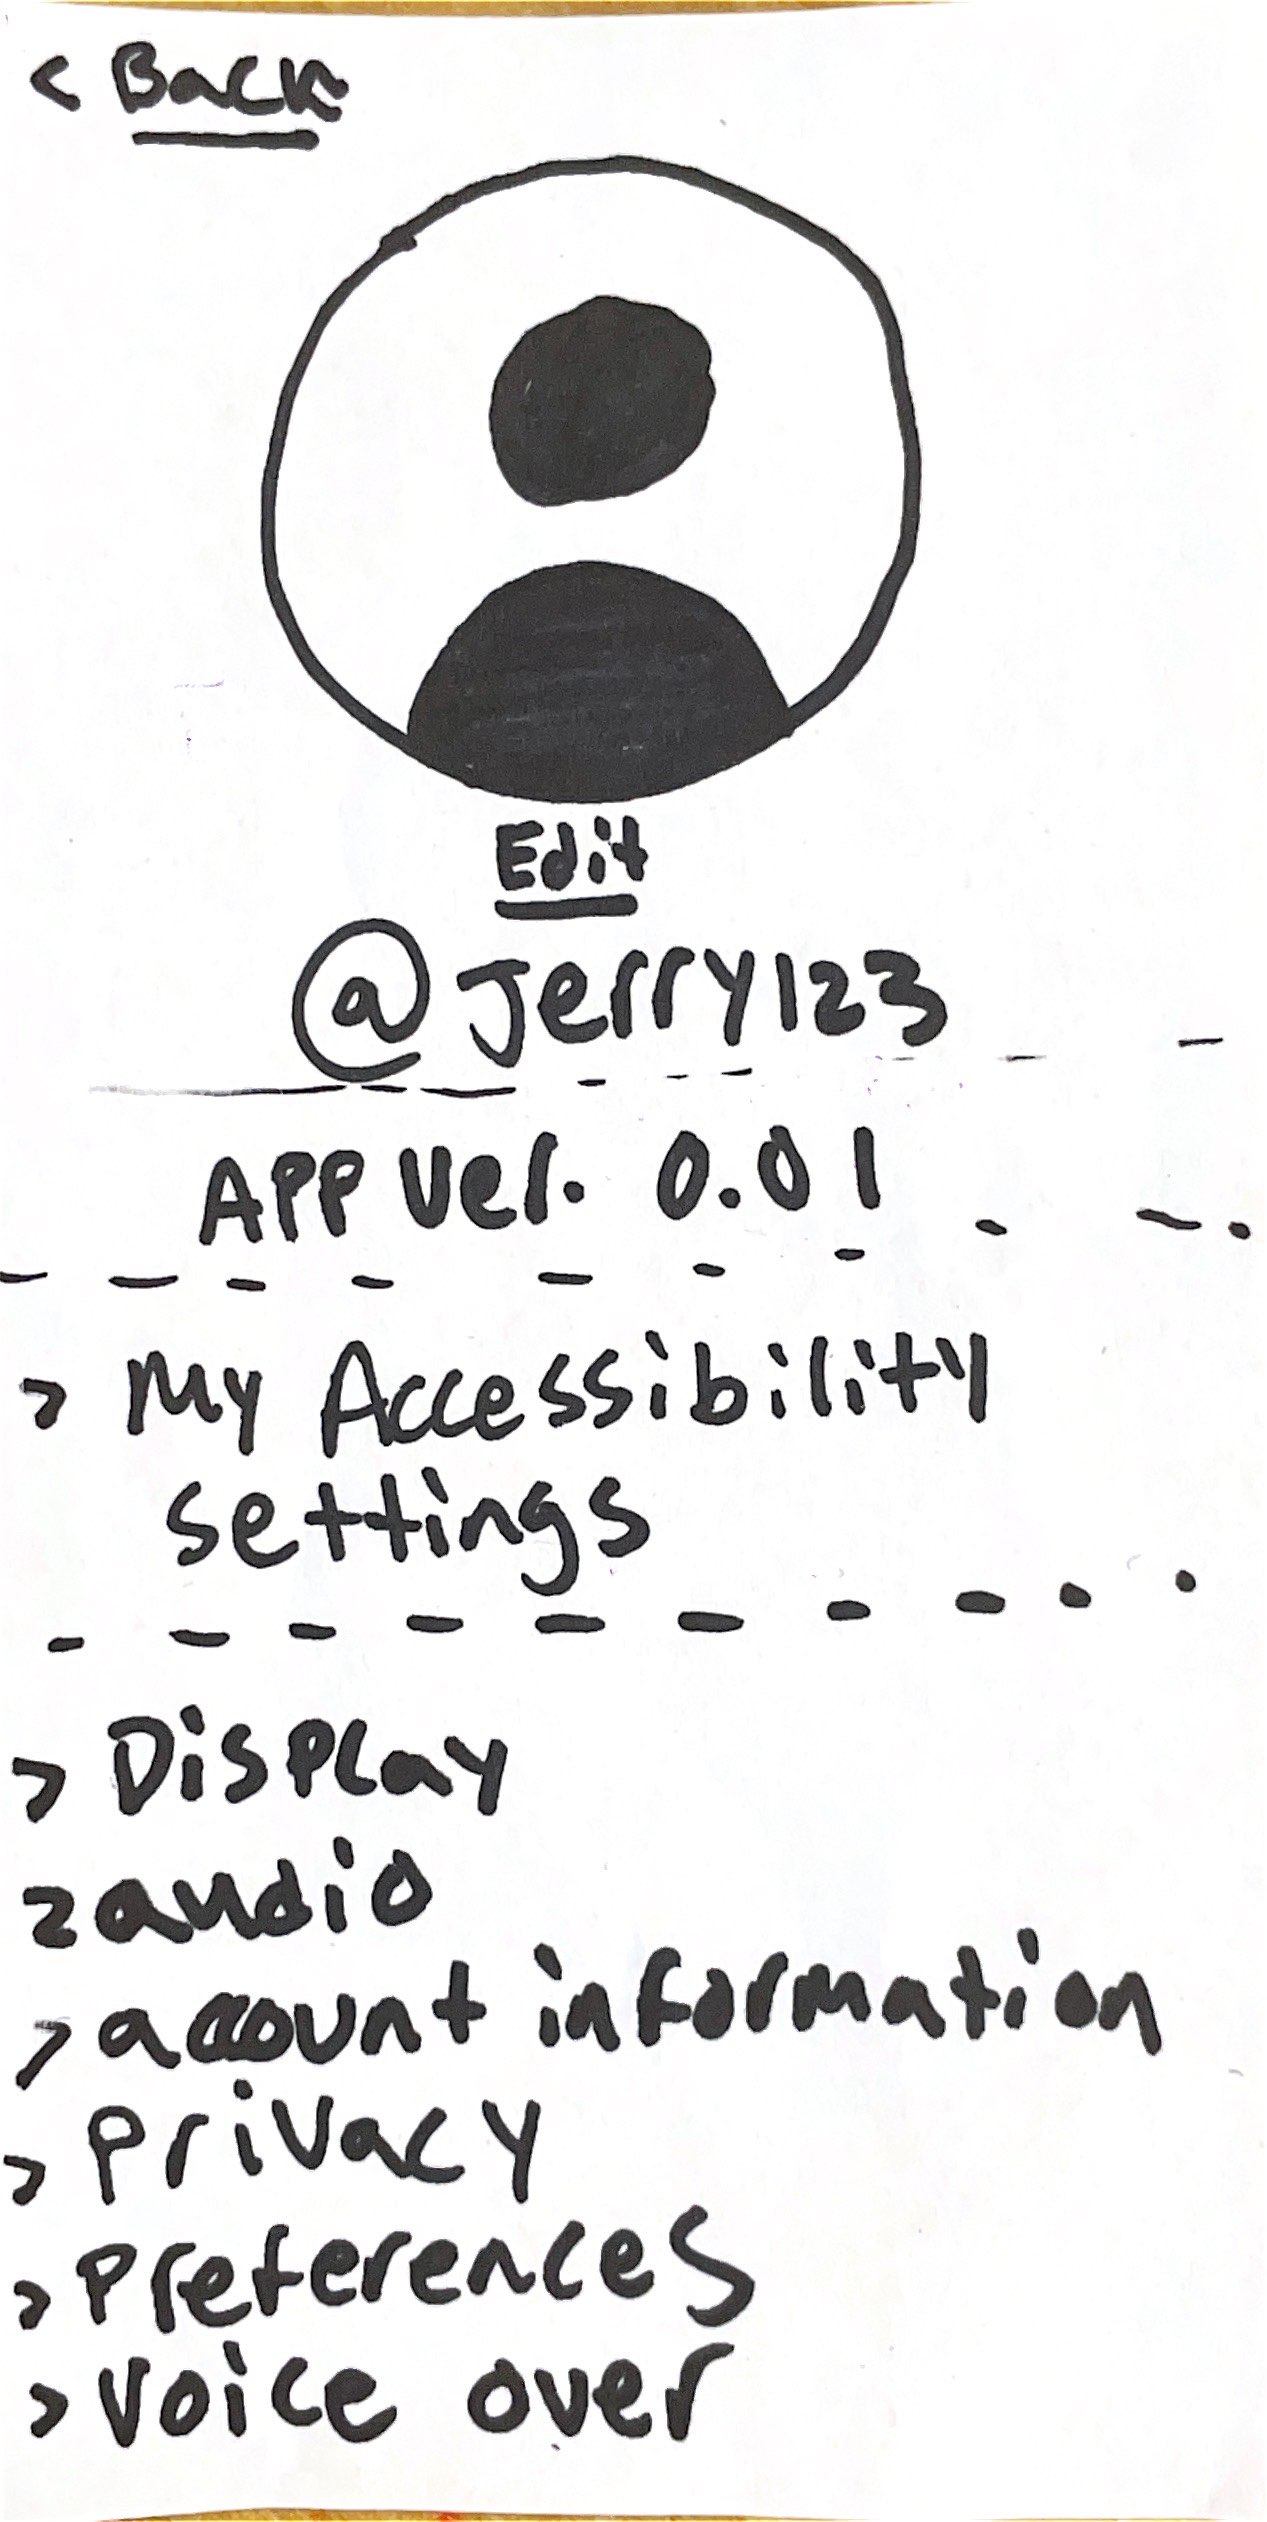 < Back
Edit
@jerry123
APP Ver. 0.01
> My Accessibility
settings
> Display
> audio
> account information
> privacy
> preferences
> voice over